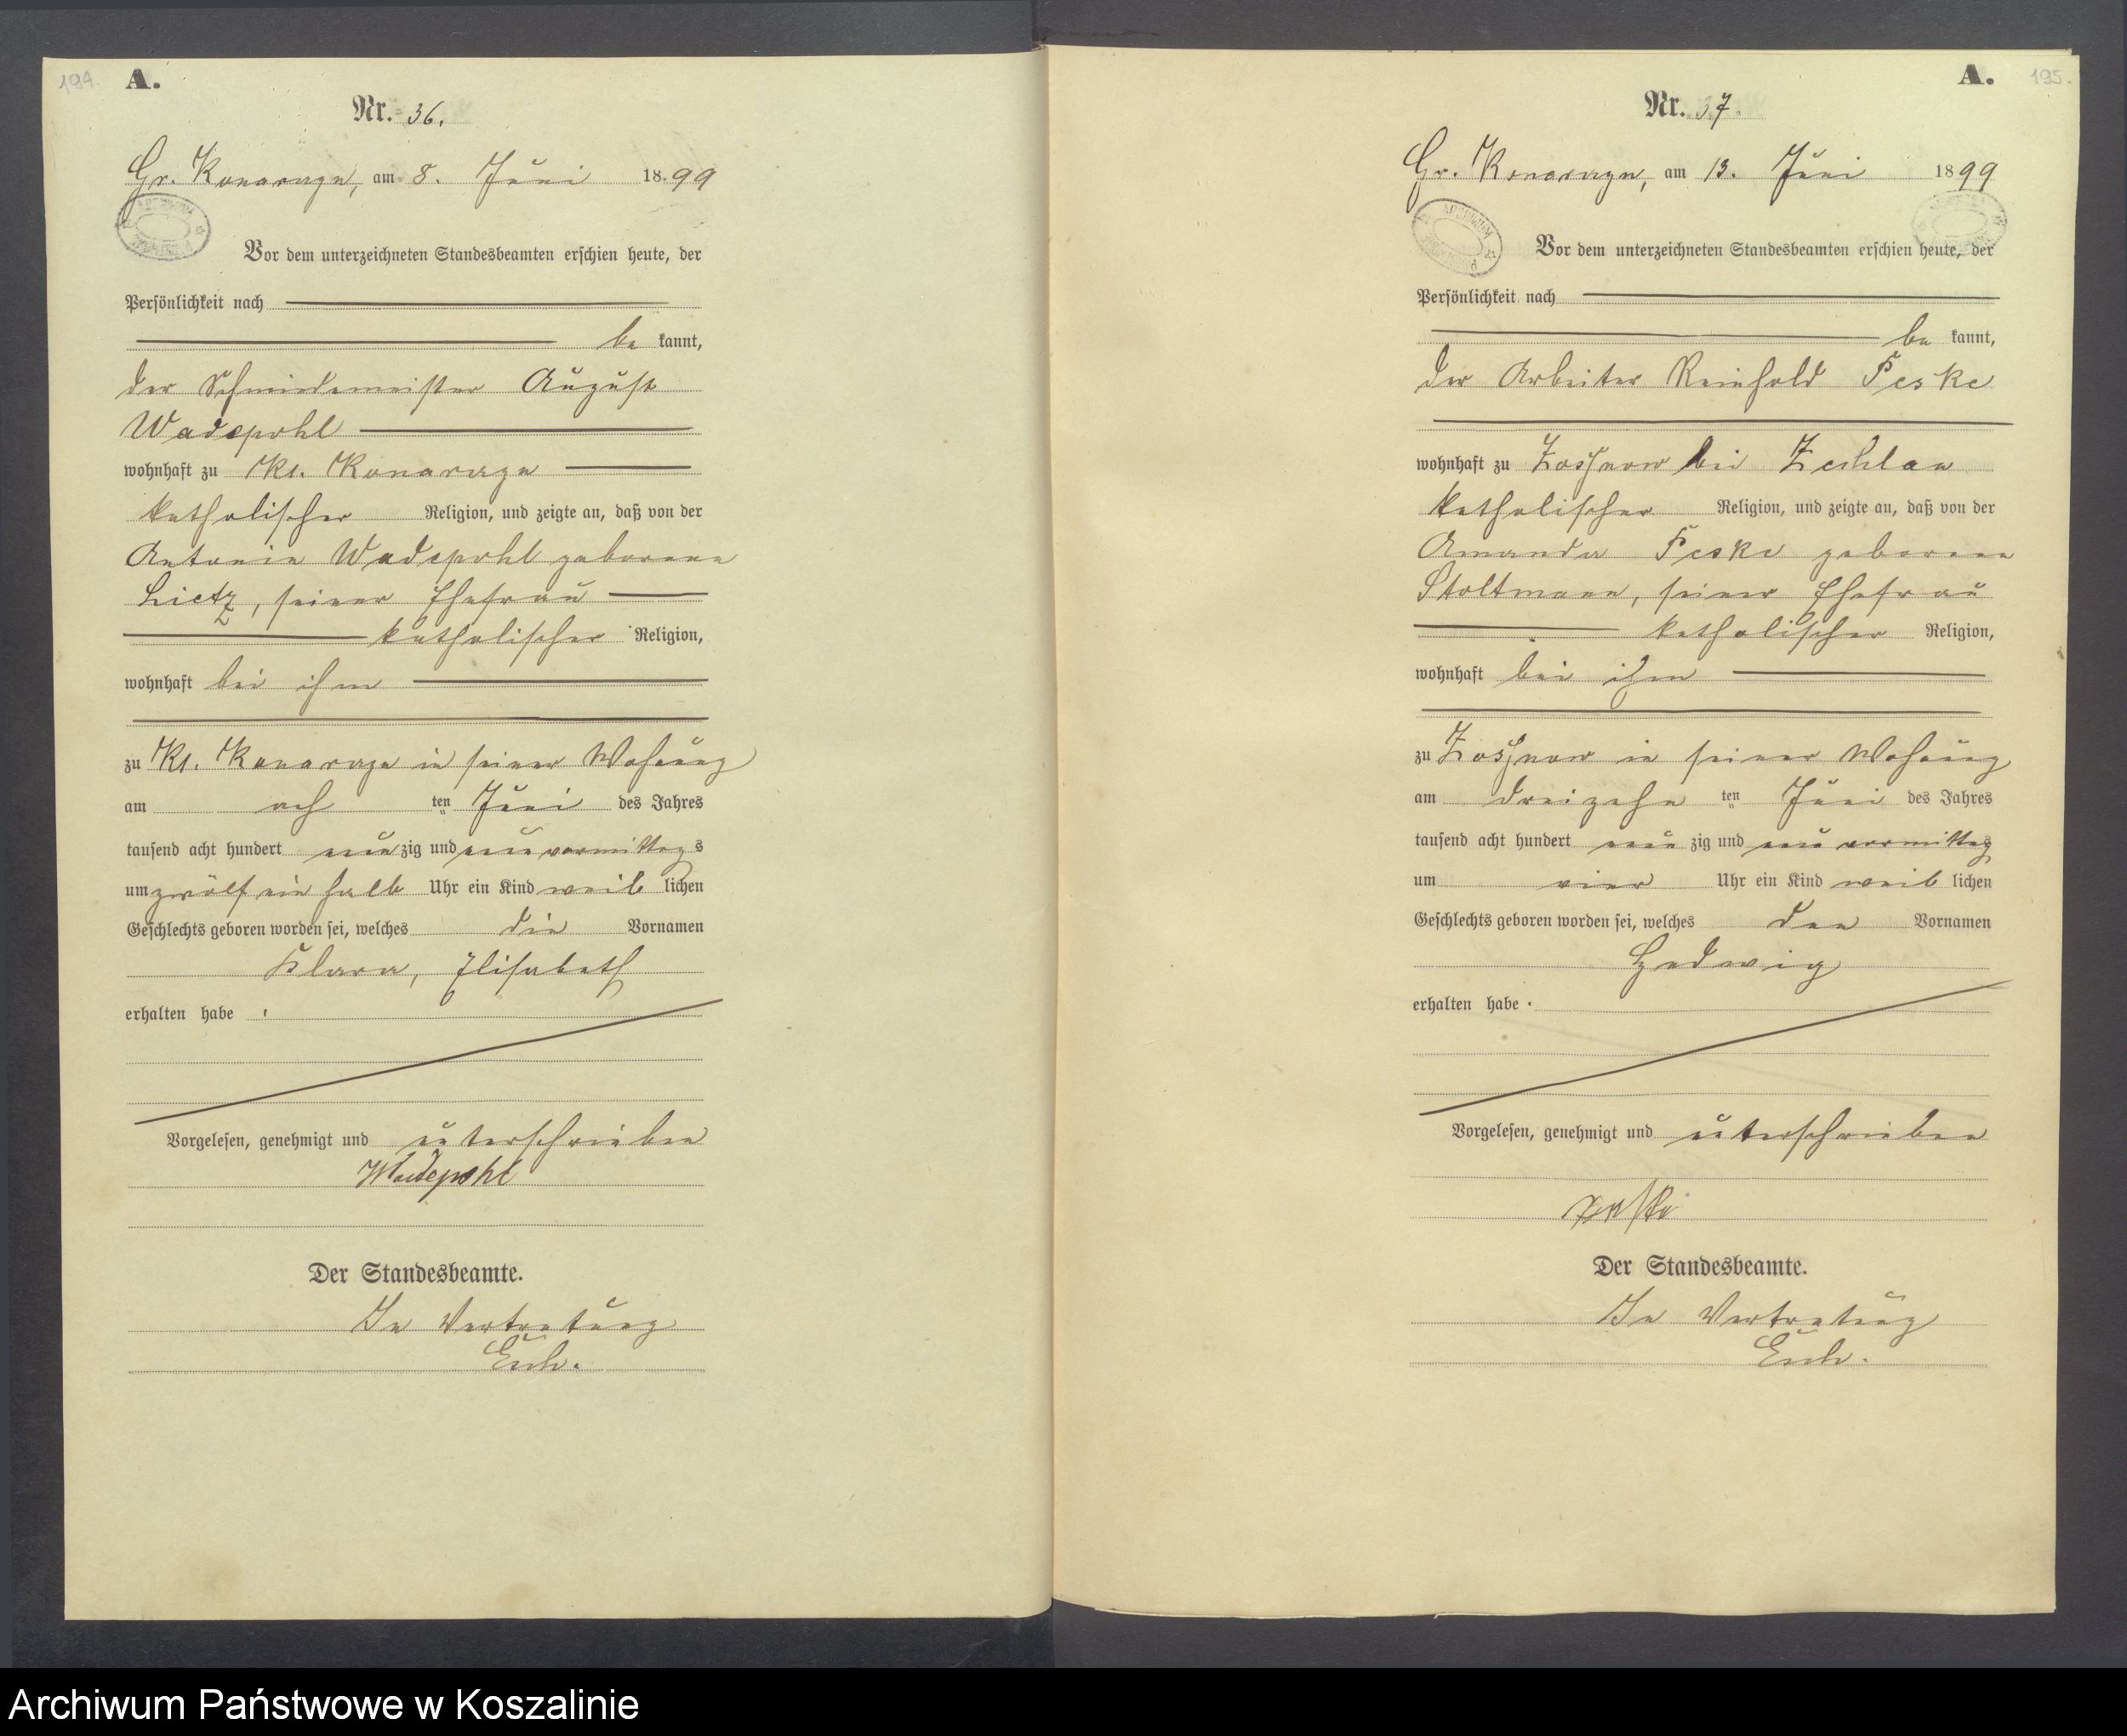 194.
A.
Nr. 36.
Gr. Konarzyn, am 8. Juni 1899
ARCHIWUM
Vor dem unterzeichneten Standesbeamten erschien heute, der
Persönlichkeit nach
be kannt,
der Schmiedemeister August
Wadepohl
wohnhaft zu Kl. Konarzyn
katholischer Religion, und zeigte an, daß von der
Antonie Wadepohl geborene
Lietz, seiner Ehefrau
katholischer Religion,
wohnhaft bei ihm
zu Kl. Konarzyn in seiner Wohnung
am ach ten Juni des Jahres
tausend acht hundert neun zig und neun vormittag s
um zwölf ein halb Uhr ein Kind weib lichen
Geschlechts geboren worden sei, welches die Vornamen
Klara, Elisabeth
erhalten habe .
Vorgelesen, genehmigt und unterschrieben
Wadepohl
Der Standesbeamte.
In Vertretung
A.
195.
Nr. 37.
Gr. Konarzyn, am 13. Juni 1899
ARCHIWUM
Vor dem unterzeichneten Standesbeamten erschien heute, der
Persönlichkeit nach
be kannt,
der Arbeiter Reinhold Feske
wohnhaft zu Zossnow bei Zechlau
katholischer Religion, und zeigte an, daß von der
Amanda Feske geborene
Stoltmann, seiner Ehefrau
katholischer Religion,
wohnhaft bei ihm
zu Zossnow in seiner Wohnung
am dreizehn ten Juni des Jahres
tausend acht hundert neun zig und neun vormittag s
um vier Uhr ein Kind weib lichen
Geschlechts geboren worden sei, welches den Vornamen
Hedwig
erhalten habe .
Vorgelesen, genehmigt und unterschrieben
Feske
Der Standesbeamte.
In Vertretung
Archiwum Państwowe w Koszalinie